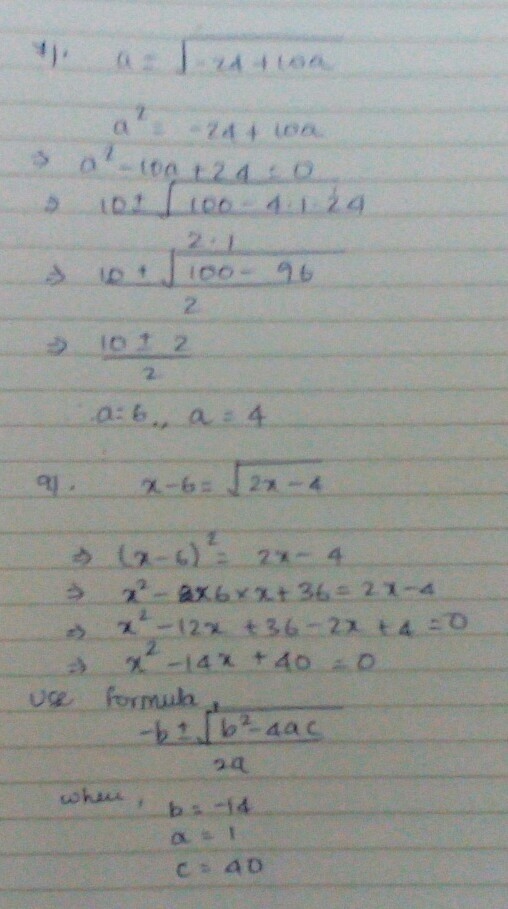 7). a = √-24 + 10a
a² = -24 + 10a
⇒ a² - 10a + 24 = 0
⇒ 10 ± √100 - 4·1·24
2·1
⇒ 10 ± √100 - 96
2
⇒ 10 ± 2
2
a = 6,, a = 4
9). x - 6 = √2x - 4
⇒ (x - 6)² = 2x - 4
⇒ x² - 2×6×x + 36 = 2x - 4
⇒ x² - 12x + 36 - 2x + 4 = 0
⇒ x² - 14x + 40 = 0
use formula,
-b ± √b² - 4ac
2a
when, b = -14
a = 1
c = 40